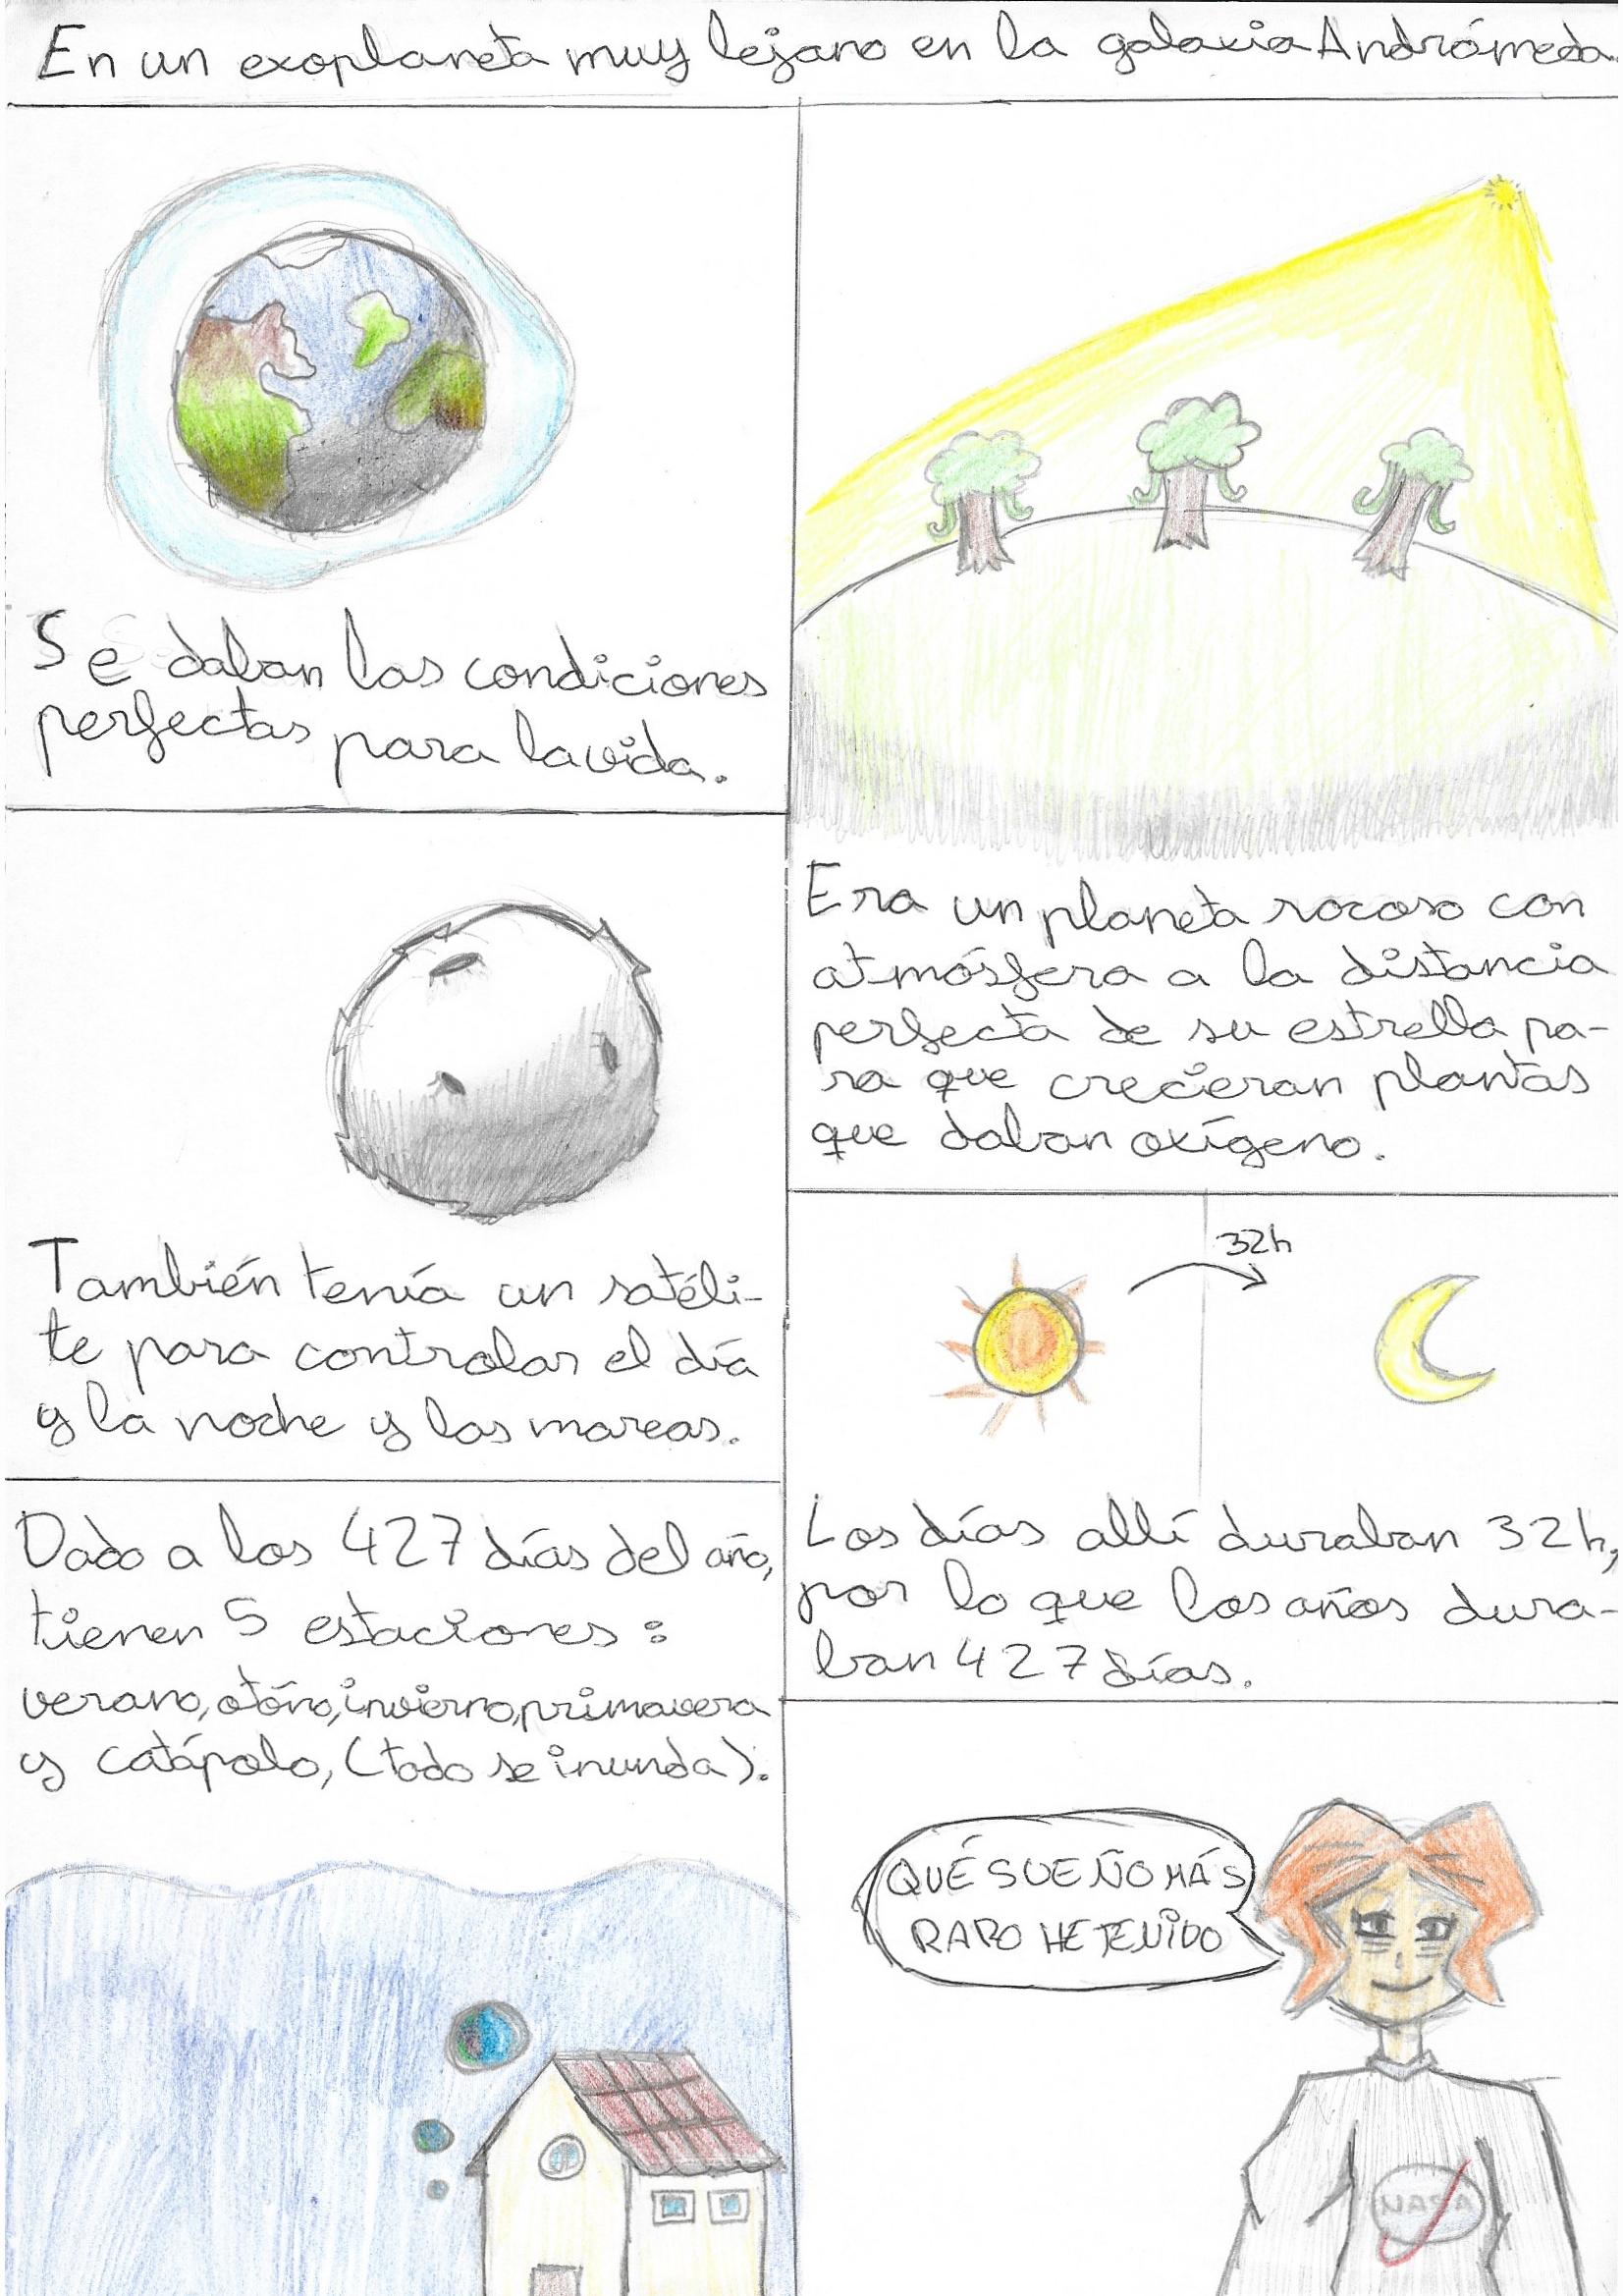 En un exoplaneta muy lejano en la galaxia Andrómeda..
Se daban las condiciones
perfectas para la vida.
Era un planeta rocoso con
atmósfera a la distancia
perfecta de su estrella pa-
ra que crecieran plantas
que daban oxígeno.
También tenía un satéli-
te para controlar el día
y la noche y las mareas.
32h
Los días allí duraban 32h,
por lo que los años dura-
ban 427 días.
Dado a los 427 días del año,
tienen 5 estaciones:
verano, otóño, invierno, primavera
y catápolo, (todo se inunda).
QUÉ SUEÑO MÁS
RARO HE TENIDO
NASA